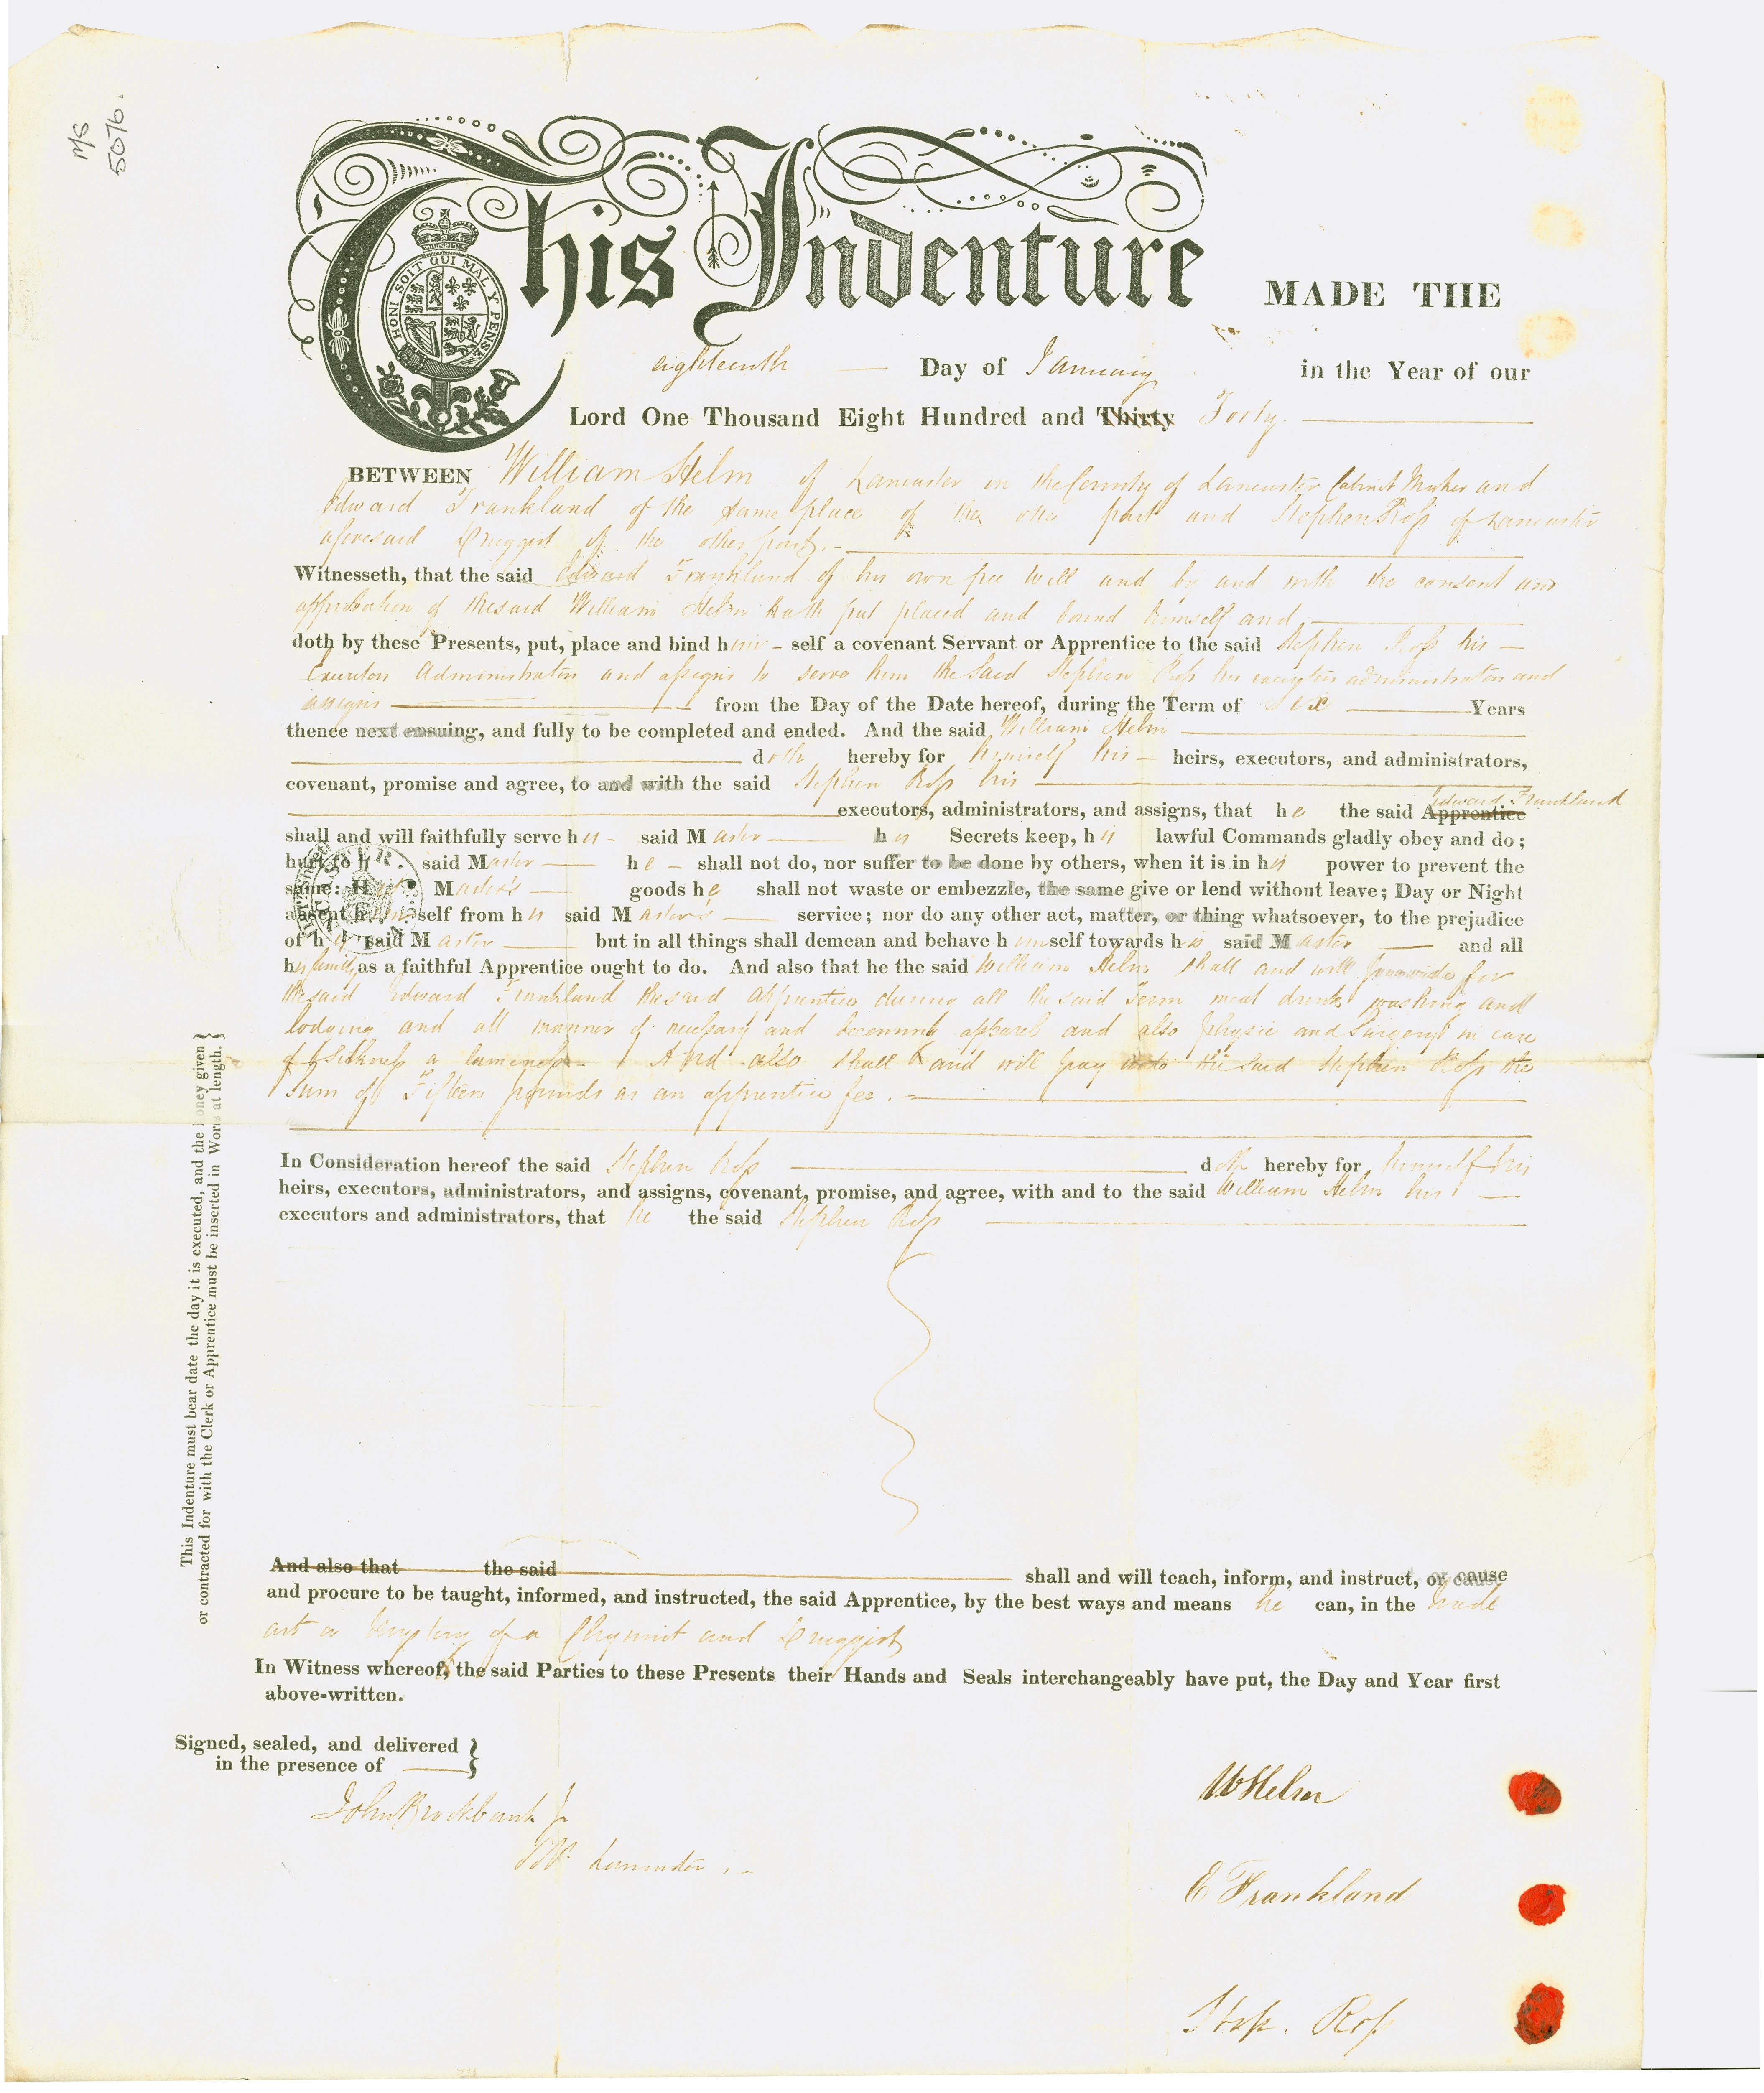 MS
5076.
This Indenture MADE THE
HONI SOIT QUI MAL Y PENSE
eighteenth Day of January in the Year of our
Lord One Thousand Eight Hundred and Thirty Forty.
BETWEEN William Helm of Lancaster in the County of Lancaster Cabinet Maker and
Edward Frankland of the same place of the one part and Stephen Ross of Lancaster
aforesaid Druggist of the other part.
Witnesseth, that the said Edward Frankland of his own free Will and by and with the consent and
approbation of the said William Helm hath put placed and bound himself and
doth by these Presents, put, place and bind him-self a covenant Servant or Apprentice to the said Stephen Ross his
Executors Administrators and assigns to serve him the said Stephen Ross his executors administrators and
assigns from the Day of the Date hereof, during the Term of Six Years
thence next ensuing, and fully to be completed and ended. And the said William Helm
doth hereby for himself his heirs, executors, and administrators,
covenant, promise and agree, to and with the said Stephen Ross his
executors, administrators, and assigns, that he the said Apprentice Edward Frankland
shall and will faithfully serve his said Master his Secrets keep, his lawful Commands gladly obey and do;
hurt to h said Master he shall not do, nor suffer to be done by others, when it is in his power to prevent the
same: H Master's goods he shall not waste or embezzle, the same give or lend without leave; Day or Night
absent himself from his said Master's service; nor do any other act, matter, or thing whatsoever, to the prejudice
of his said Master but in all things shall demean and behave himself towards his said Master and all
his family as a faithful Apprentice ought to do. And also that he the said William Helm shall and will provide for
the said Edward Frankland the said apprentice during all the said Term meat drink washing and
lodging and all manner of necessary and decent apparel and also physic and Surgery in case
of Sickness or lameness And also shall and will pay unto the said Stephen Ross the
sum of Fifteen pounds as an apprentice fee.
In Consideration hereof the said Stephen Ross doth hereby for himself his
heirs, executors, administrators, and assigns, covenant, promise, and agree, with and to the said William Helm his
executors and administrators, that he the said Stephen Ross
And also that the said shall and will teach, inform, and instruct, or cause
and procure to be taught, informed, and instructed, the said Apprentice, by the best ways and means he can, in the trade
art or Mystery of a Chymist and Druggist
In Witness whereof, the said Parties to these Presents their Hands and Seals interchangeably have put, the Day and Year first
above-written.
Signed, sealed, and delivered
in the presence of
John Brockbank Jr
Lancaster
W Helm
E Frankland
Step. Ross
This Indenture must bear date the day it is executed, and the Money given
or contracted for with the Clerk or Apprentice must be inserted in Words at length.